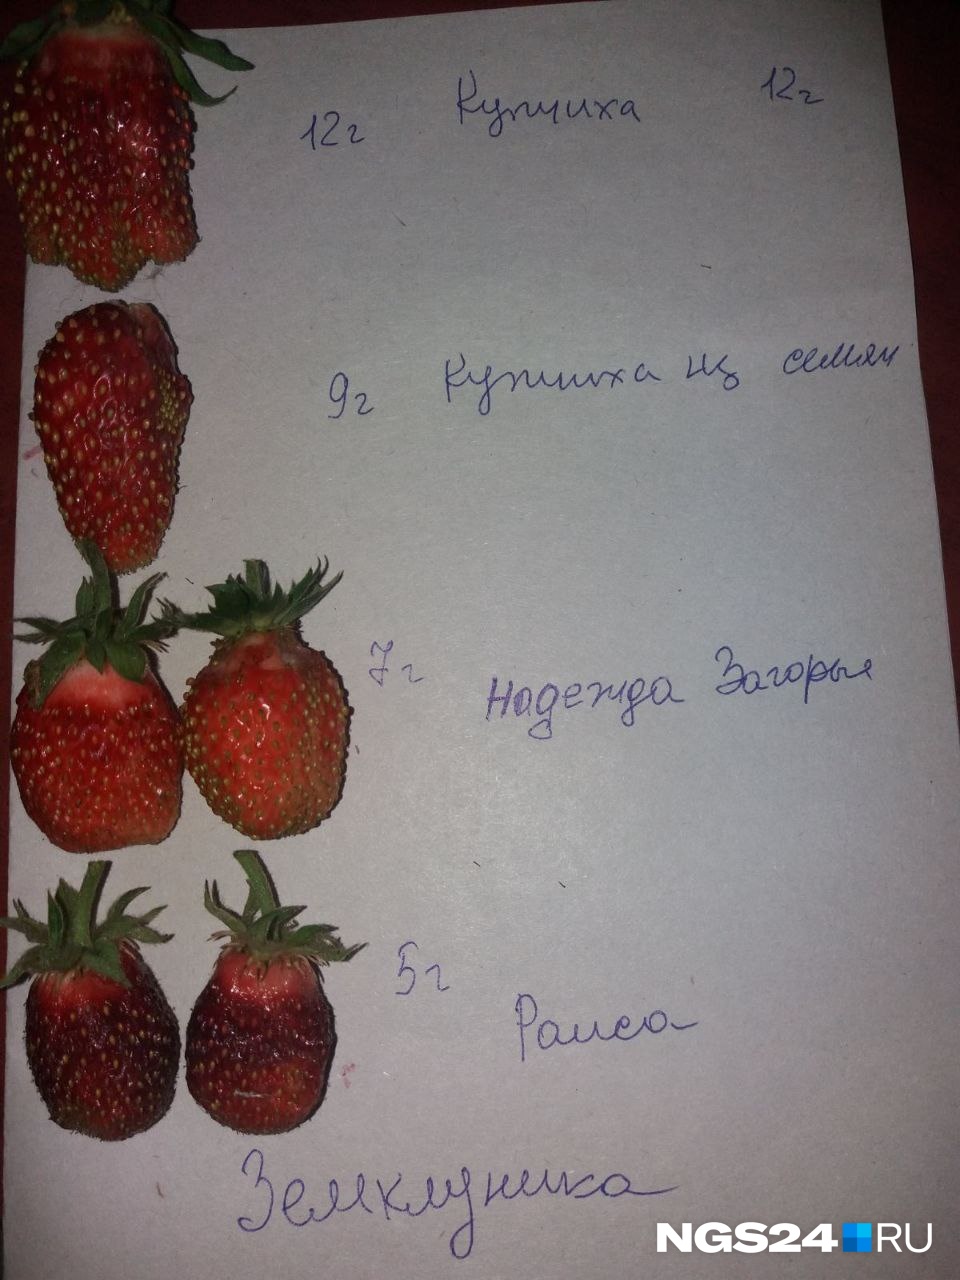 12г Купчиха 12г
9г Купчиха из семян
7г Надежда Загорья
5г Раиса
Земклуника
NGS24.RU